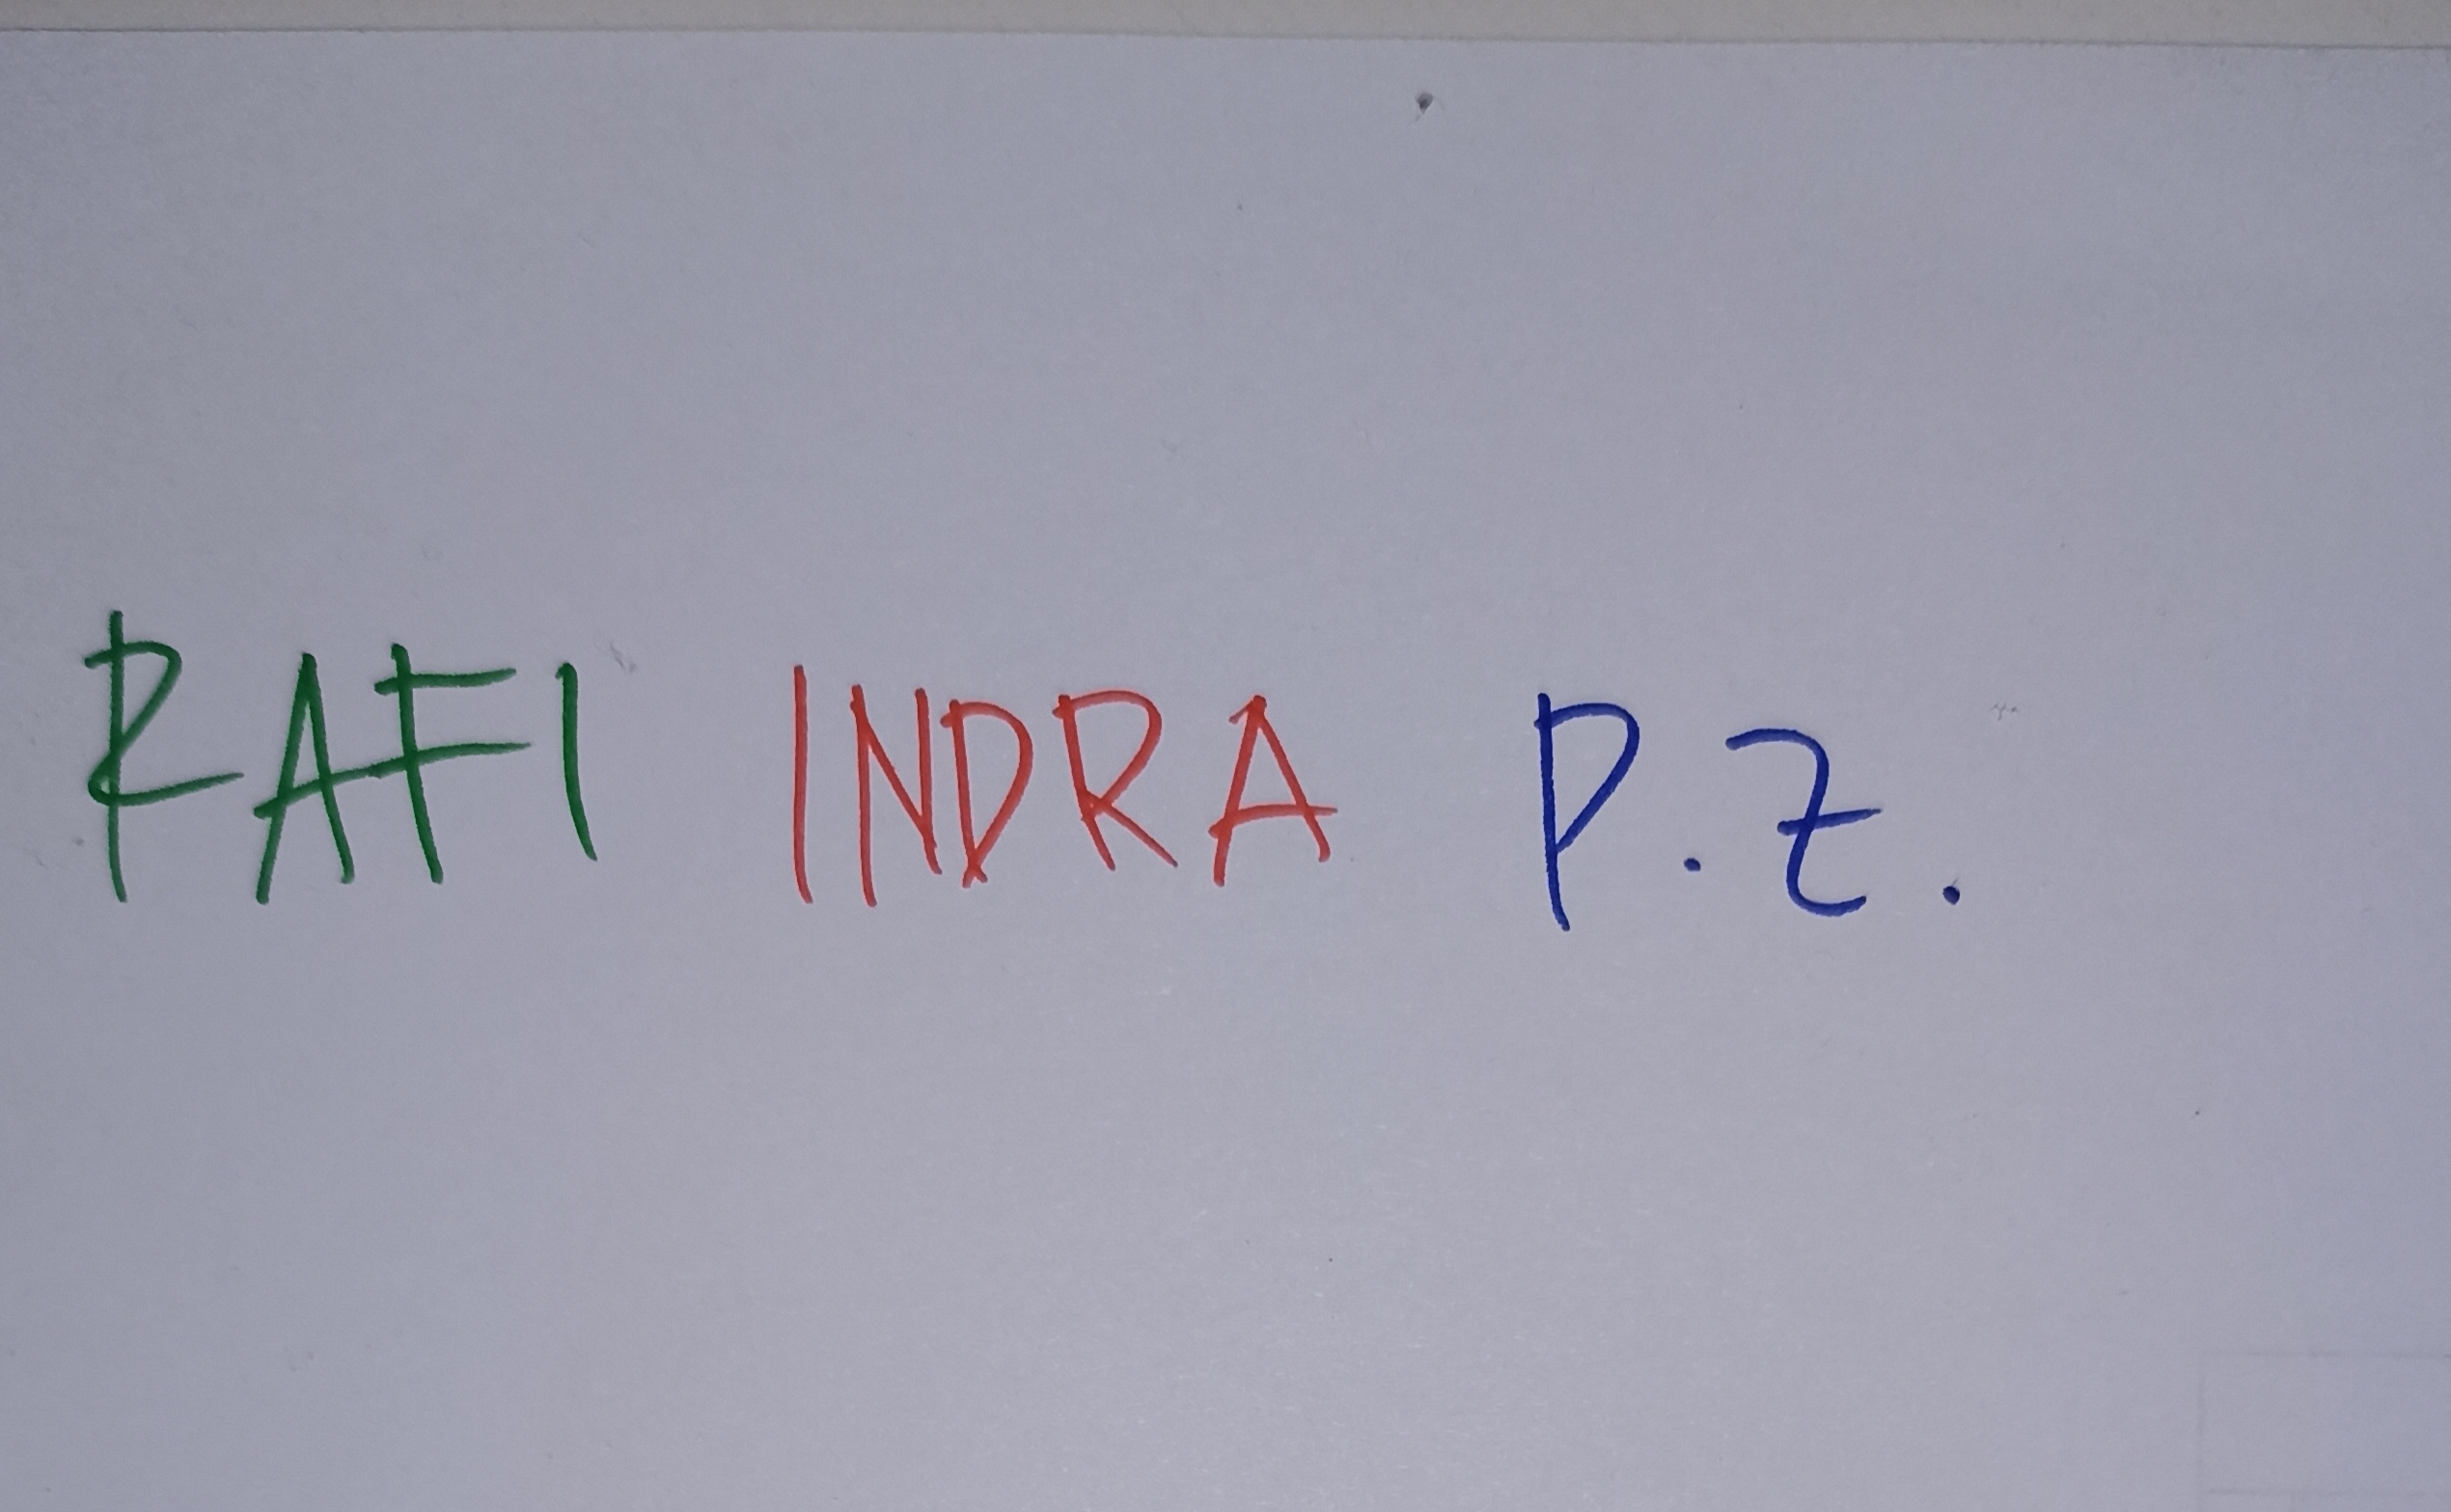 RAFI INDRA P.Z.